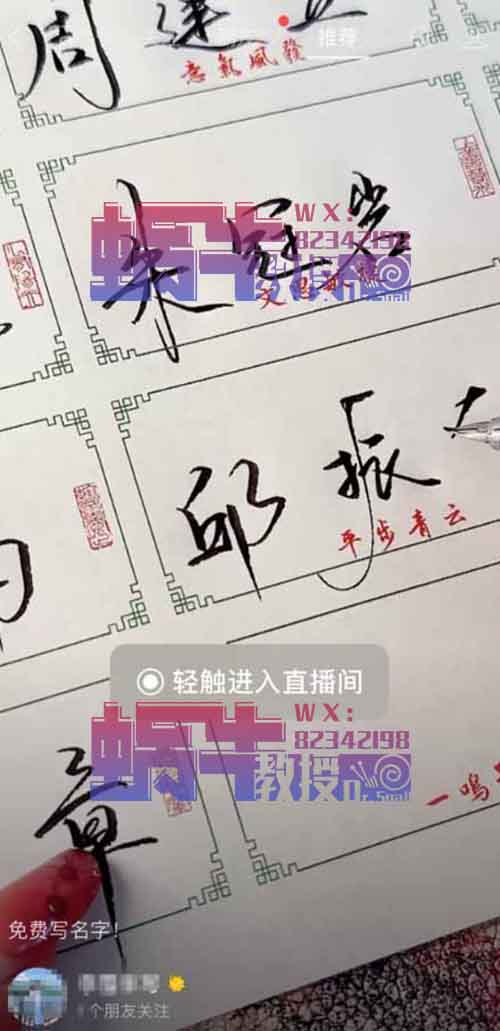 推荐
周建
意氣風發
朱冠
WX:
82342198
蜗牛
教授
Dr.Snail
邱振
平步青云
轻触进入直播间
WX:
82342198
蜗牛
教授
Dr.Snail
章
一鸣
免费写名字!
个朋友关注